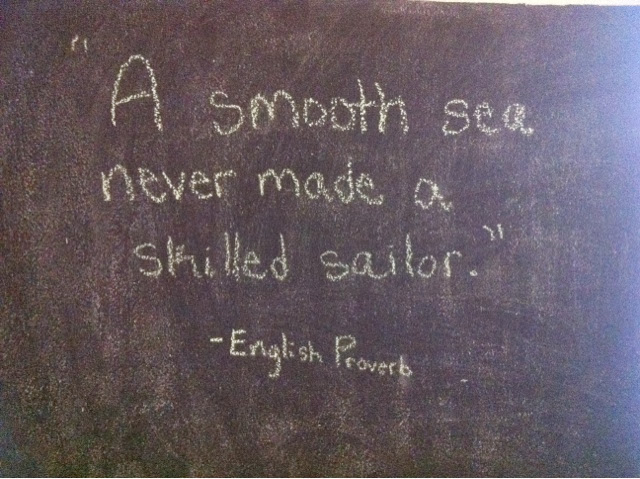 "A smooth sea
never made a
skilled sailor."
-English Proverb